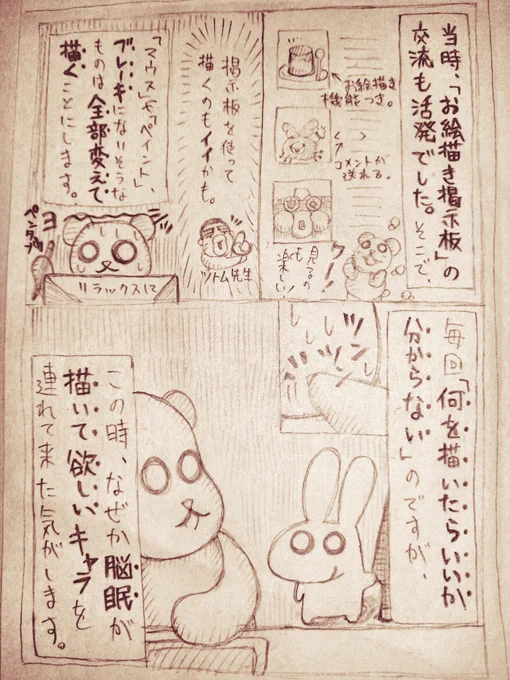 当時、「お絵描き掲示板」の
交流も活発でした。そこで、
お絵描き
機能つき。
コメントが
送れる。
見るの
も
楽しい!
掲示板を使って
描くのもイイかも。
ツトム先生
「マウス」や「ペイント」、
ブレーキになりそうな
ものは全部変えて
描くことにします。
ペンタブ
リラックスして
毎回「何を描いたらいいか
分からない」のですが、
ツン
この時、なぜか脳眠が
描いて欲しいキャラを
連れて来た気がします。